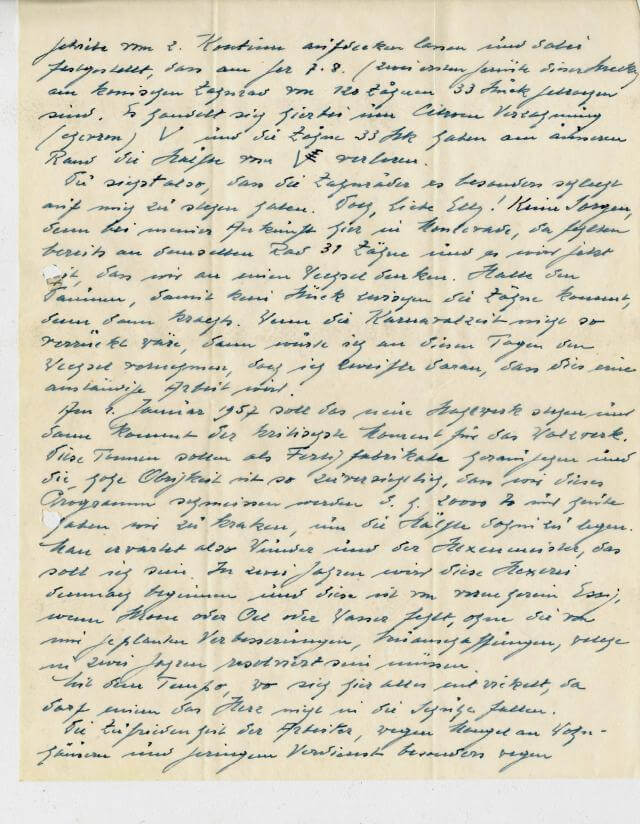 getriebe vom 2. Kontinue aufdecken lassen und dabei
festgestellt, dass am Ger 7.8. (zwei ersten Gerüste dieser Strecke
am konischen Zahnrad von 120 Zähnen 33 Stück gebrochen
sind. Es handelt sich hierbei um Citroen Verzahnung
(cherron) V und die Zähne 33 Stk haben am äusseren
Rand die Hälfte vom V verloren.
Du siehst also, dass die Zahnräder es besonders schlecht
auf mich zu stehen haben. Doch, liebe Elly! Keine Sorgen,
denn bei meiner Ankunft hier in Monlevade, da fehlten
bereits an demselben Rad 31 Zähne und es wird jetzt
Zeit, dass wir an einen Wechsel denken. Halte den
Daumen, damit kein Stück zwischen die Zähne kommt,
denn dann krachts. Wenn die Karnavalzeit nicht so
verrückt wäre, dann würde ich an diesen Tagen den
Wechsel vornehmen, doch ich zweifle daran, dass dies eine
anständige Arbeit wird.
Am 1. Januar 1957 soll das neue Stahlwerk stehen und
dann kommt der kritischste Moment für das Walzwerk.
Diese Tonnen sollen als Fertigfabrikate herausgehen und
die hohe Obrigkeit ist so zuversichtlich, dass wir dieses
Programm schmeissen werden d. h. 20000 To und heute
haben wir zu kraken, um die Hälfte dahinzulegen.
Man erwartet also Wunder und der Hexenmeister, das
soll ich sein. In zwei Jahren wird diese Hexerei
demnach beginnen und diese ist von vorneherein Essig,
wenn Strom oder Oel oder Wasser fehlt, ohne die von
mir geplanten Verbesserungen, Neuanschaffungen, welche
in zwei Jahren resolviert sein müssen.
Mit dem Tempo, wo sich hier alles entwickelt, da
darf einem das Herz nicht in die Schuhe fallen.
Die Zufriedenheit der Arbeiter, wegen Mangel an Wohn-
häusern und geringem Verdienst besonders wegen